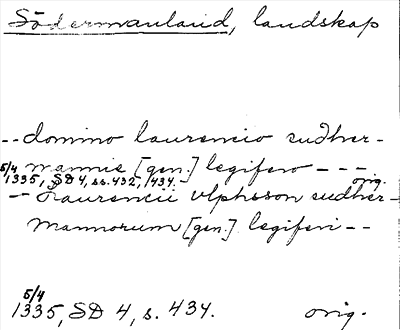 Södermanland, landskap
-- domino laurencio sudher-
mannie [gen.] legifero ---
5/4 1335, SD 4, ss. 432, 434. orig.
-- Laurencii vlphsson sudher-
mannorum [gen.] legiferi --
5/4
1335, SD 4, s. 434. orig.